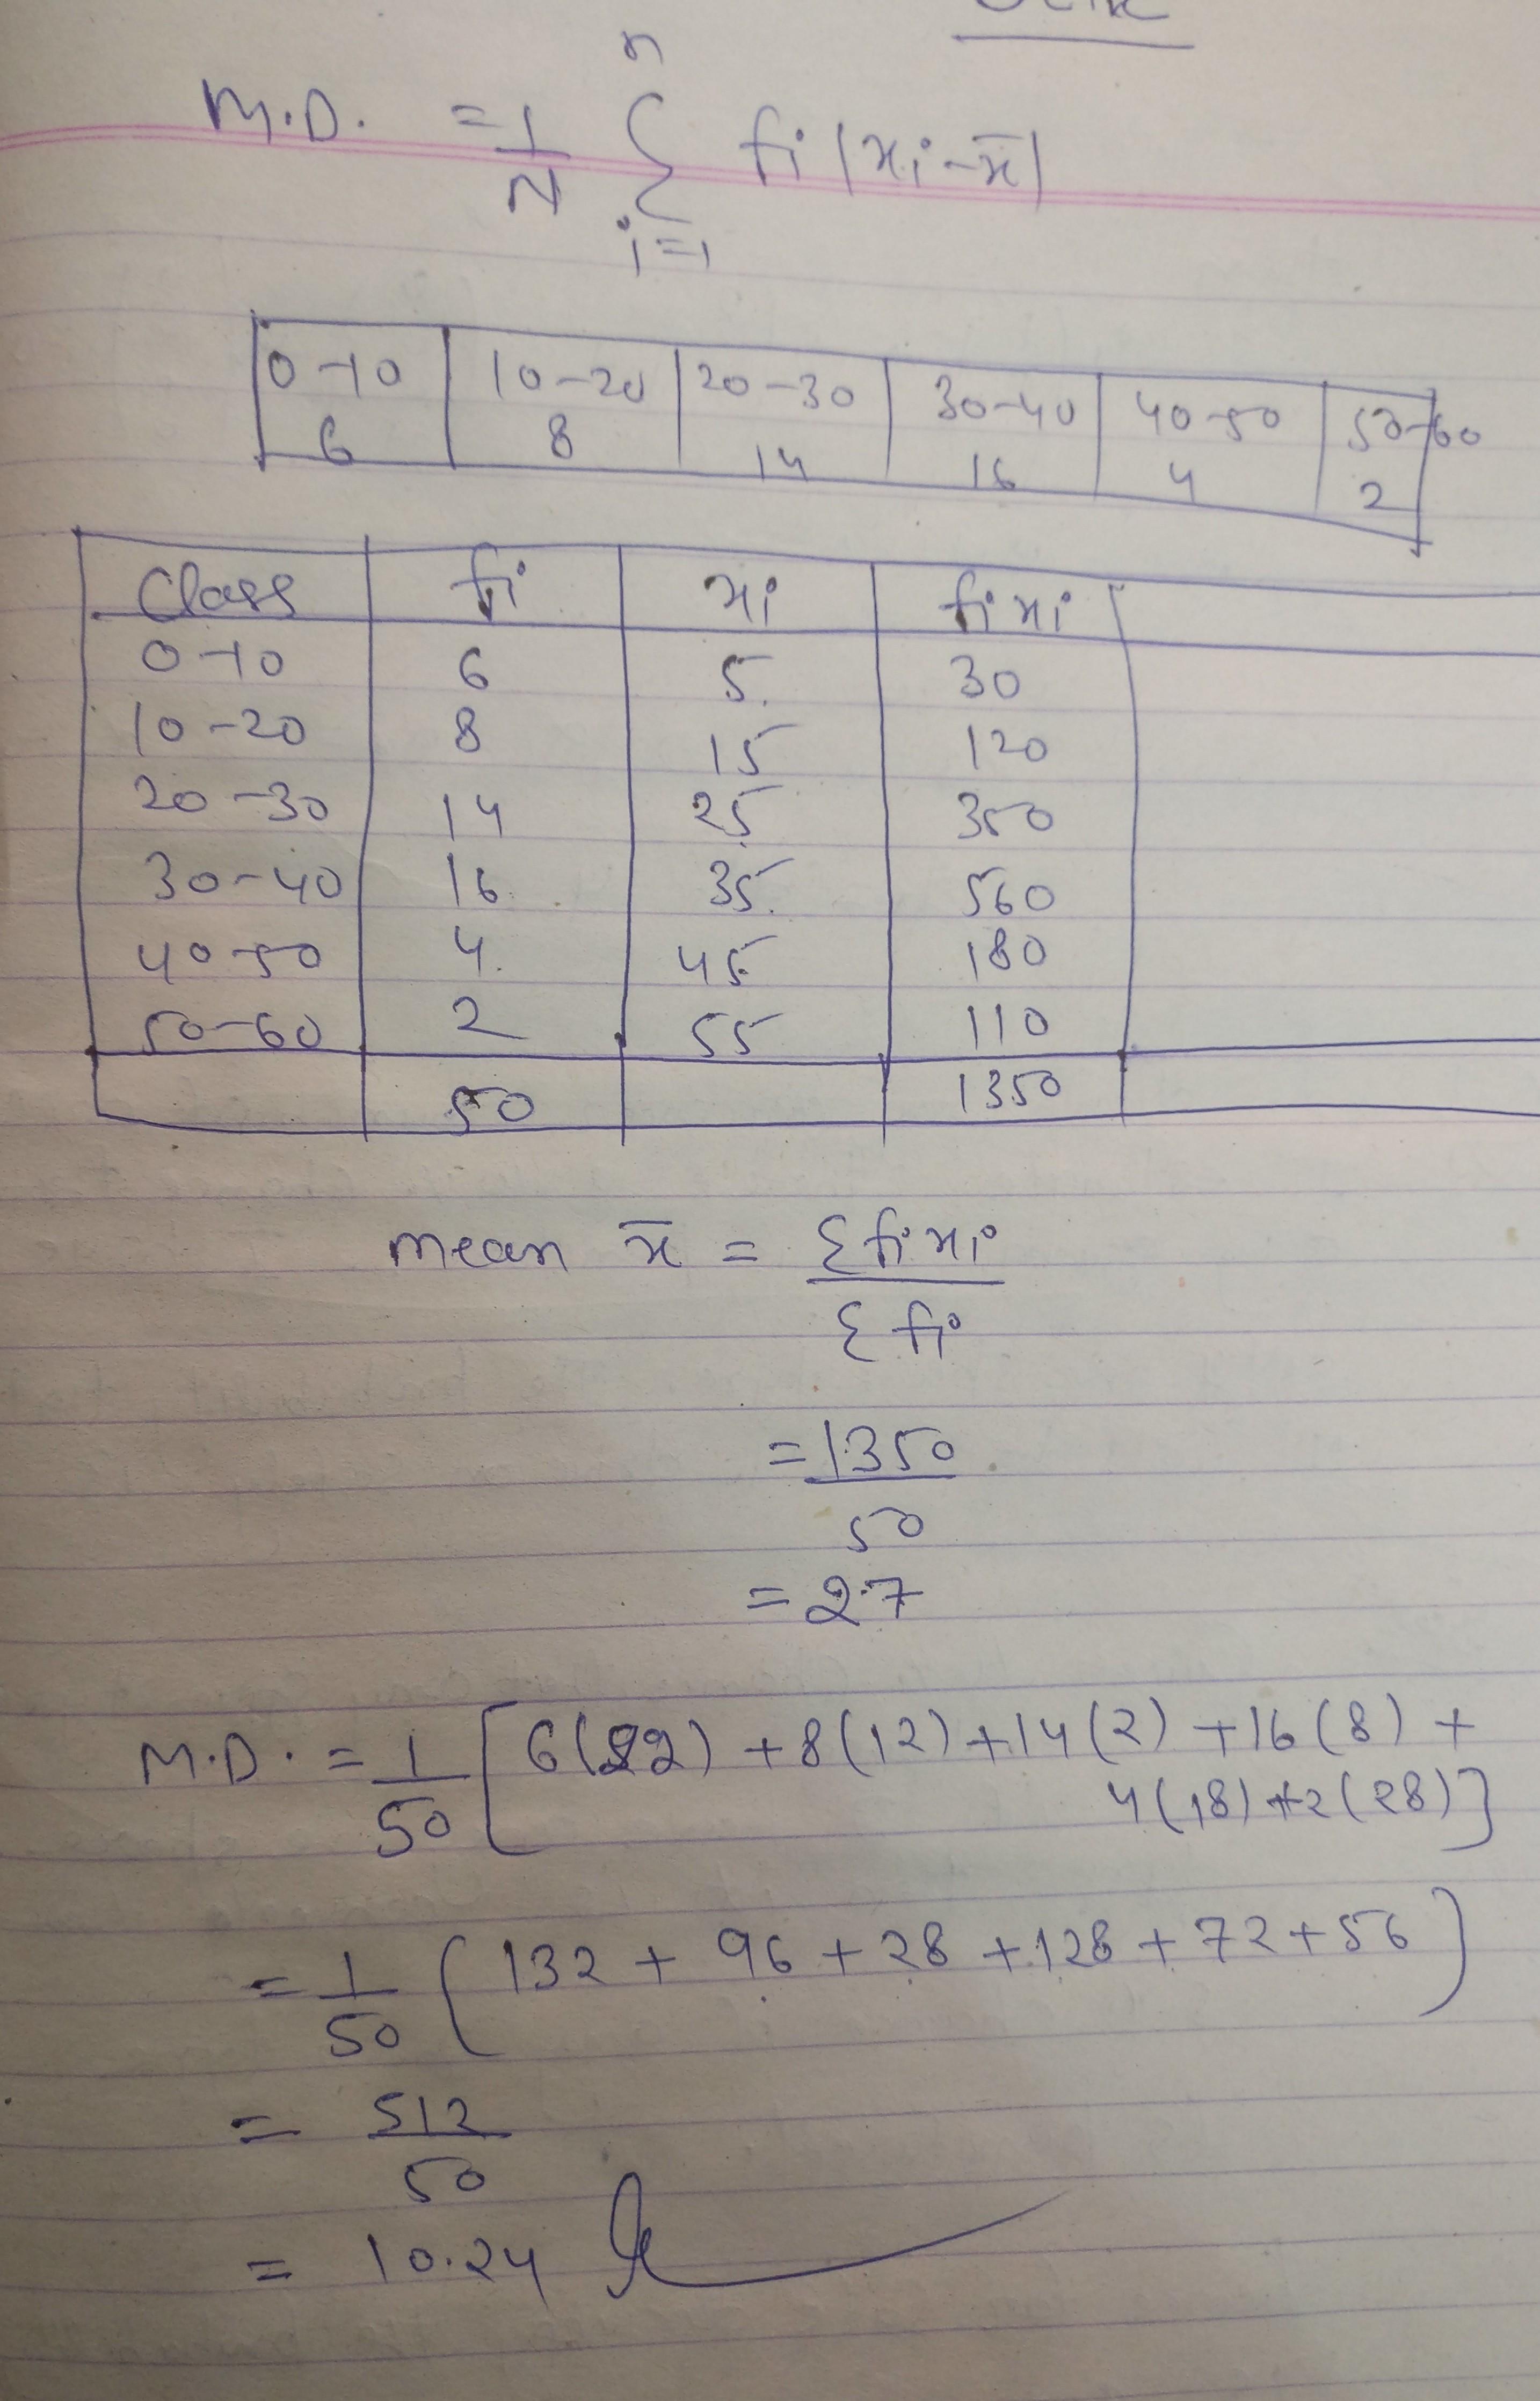 n
M.D. = 1/N Σ fi |xi - x̄|
i=1
0-10 10-20 20-30 30-40 40-50 50-60
6 8 14 16 4 2
Class fi xi fixi
0-10 6 5 30
10-20 8 15 120
20-30 14 25 350
30-40 16 35 560
40-50 4 45 180
50-60 2 55 110
50 1350
mean x̄ = Σfixi
Σfi
= 1350
50
= 2.7
M.D. = 1/50 [6(22) + 8(12) + 14(2) + 16(8) +
4(18) + 2(28)]
= 1/50 (132 + 96 + 28 + 128 + 72 + 56)
= 512
50
= 10.24